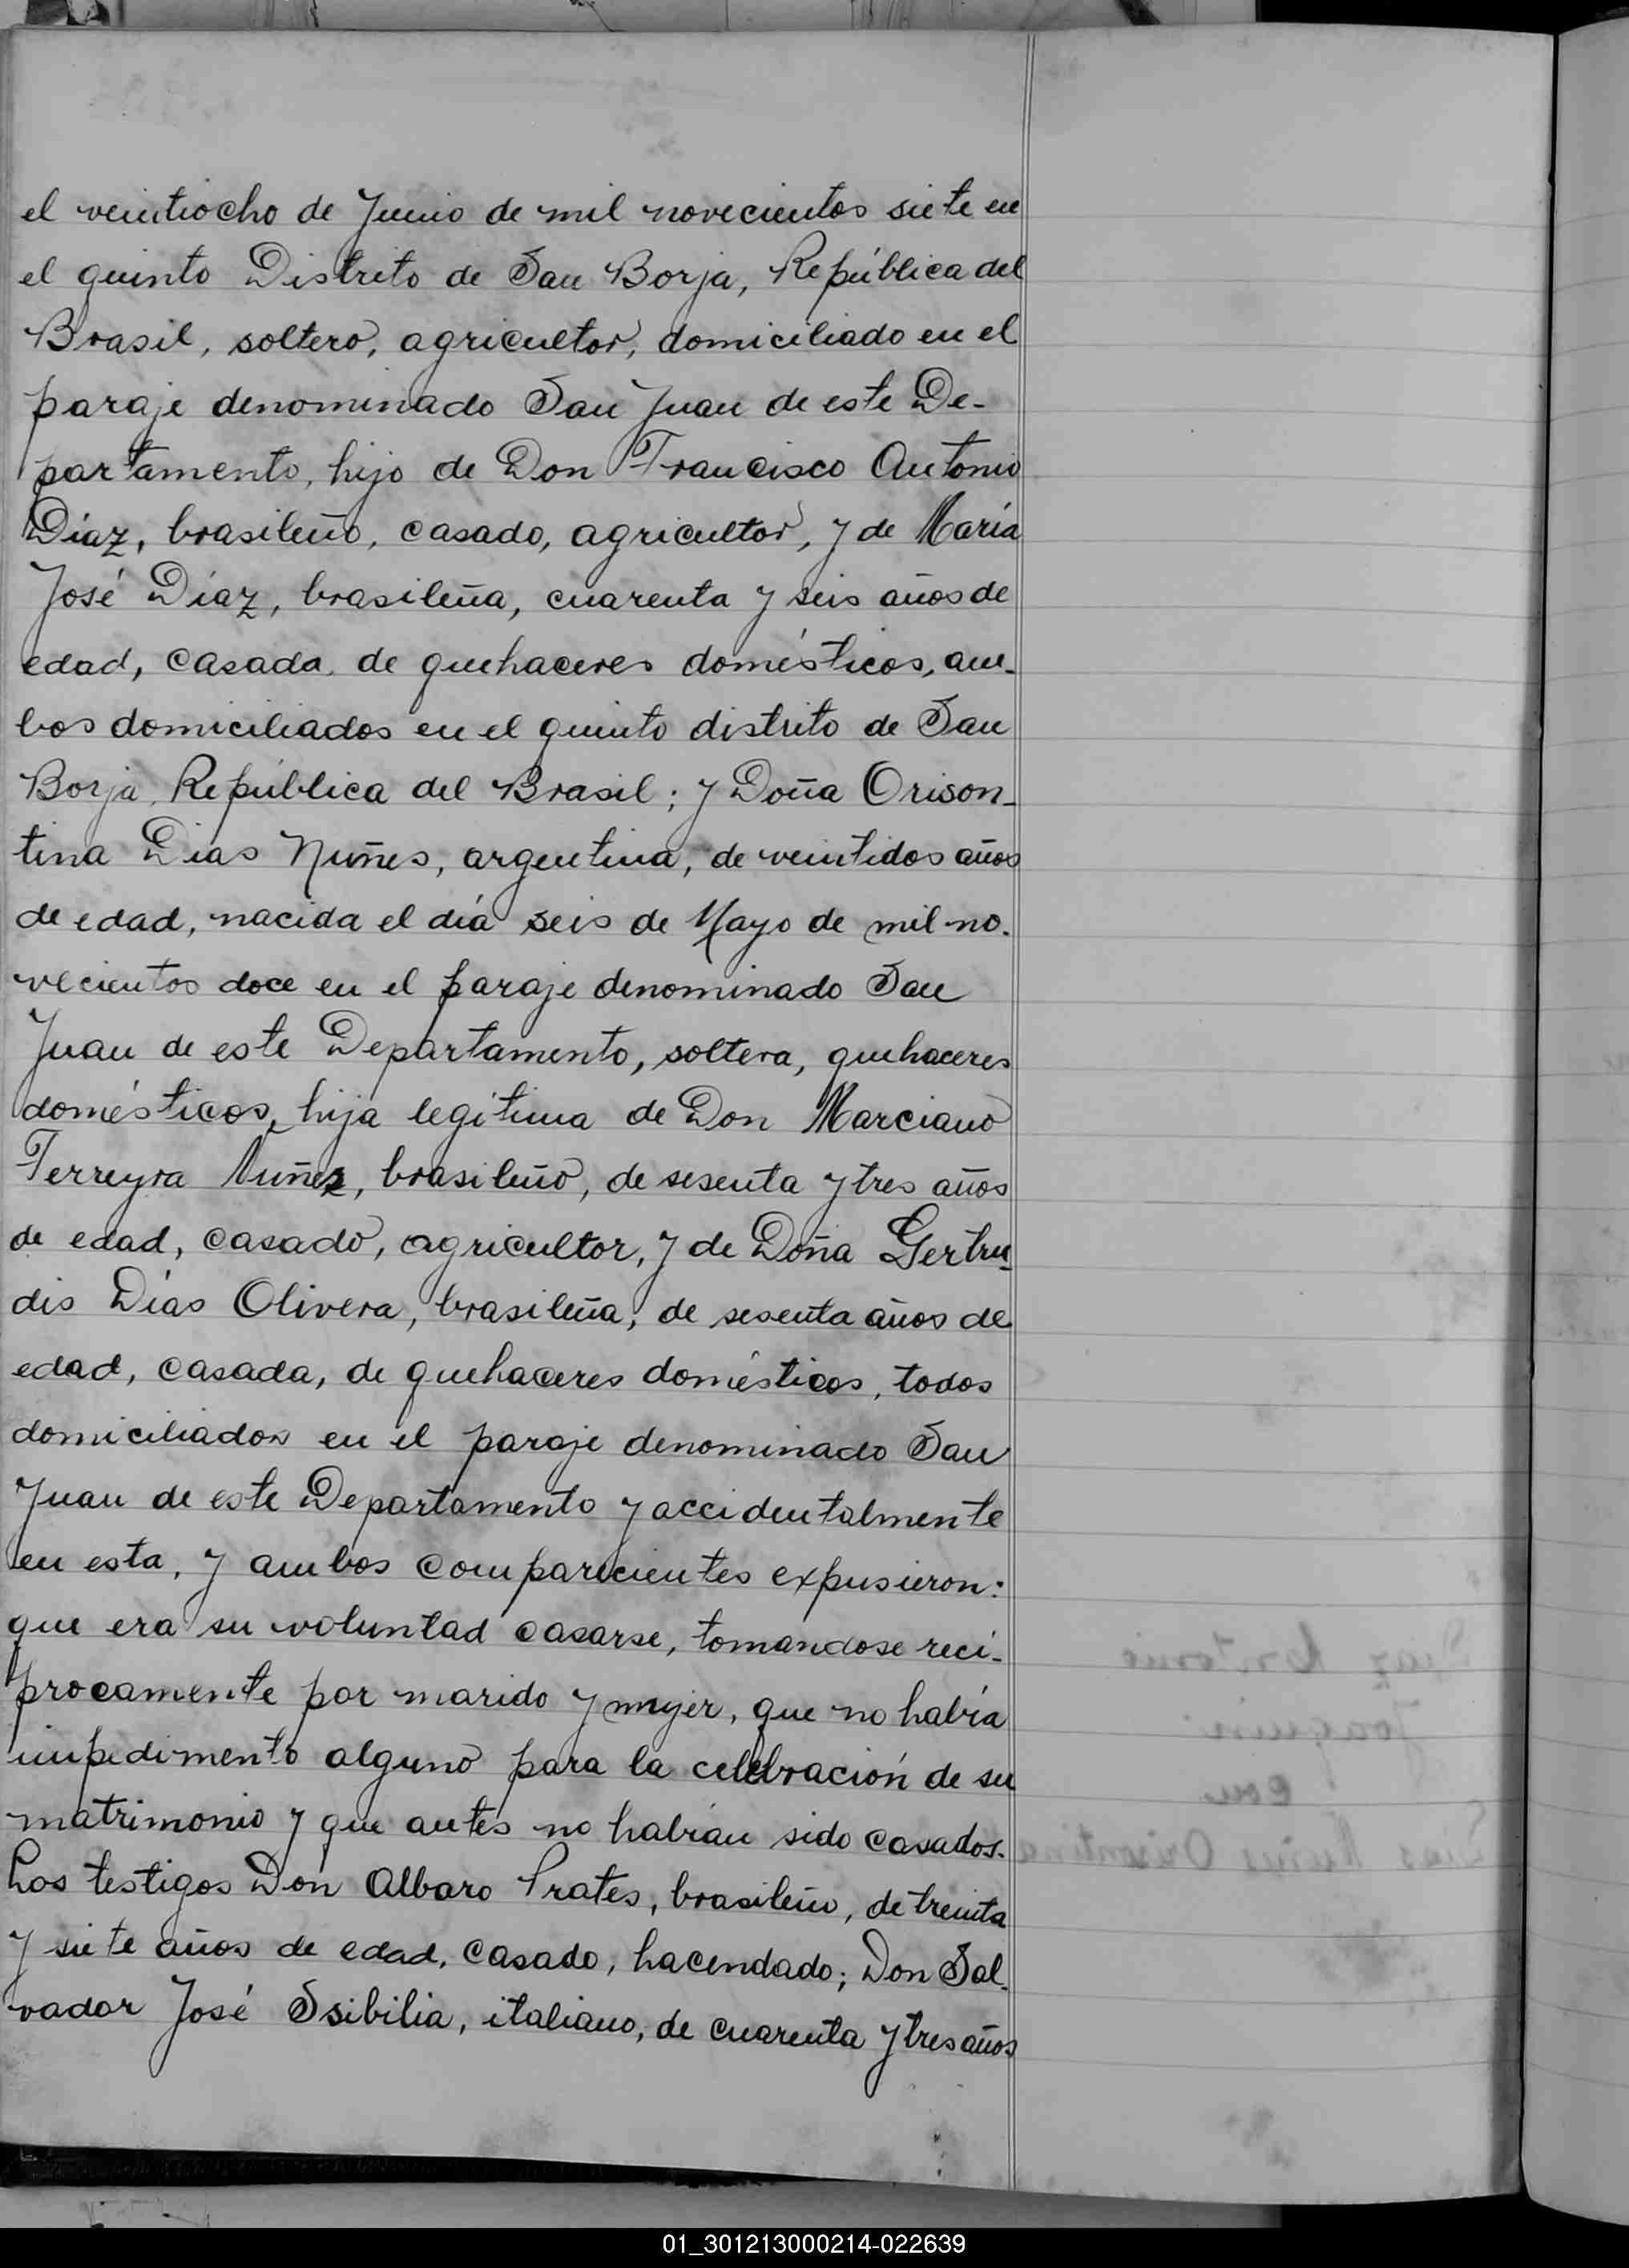 el veintiocho de Junio de mil novecientos siete en
el quinto Distrito de San Borja, República del
Brasil, soltero, agricultor, domiciliado en el
paraje denominado San Juan de este De-
partamento, hijo de Don Francisco Antonio
Díaz, brasileño, casado, agricultor, y de María
José Díaz, brasileña, cuarenta y seis años de
edad, casada, de quehaceres domésticos, am-
bos domiciliados en el quinto distrito de San
Borja, República del Brasil; y Doña Orison-
tina Dias Nuñes, argentina, de veintidos años
de edad, nacida el día seis de Mayo de mil no-
vecientos doce en el paraje denominado San
Juan de este Departamento, soltera, quehaceres
domésticos, hija legítima de Don Marciano
Ferreyra Nuñez, brasileño, de sesenta y tres años
de edad, casado, agricultor, y de Doña Gertru-
dis Días Olivera, brasileña, de sesenta años de
edad, casada, de quehaceres domésticos, todos
domiciliados en el paraje denominado San
Juan de este Departamento y accidentalmente
en esta, y ambos comparecientes expusieron:
que era su voluntad casarse, tomandose reci-
procamente por marido y mujer, que no había
impedimento alguno para la celebración de su
matrimonio y que antes no habían sido casados.
Los testigos Don Albaro Prates, brasileño, de treinta
y siete años de edad, casado, hacendado; Don Sal-
vador José Ssibilia, italiano, de cuarenta y tres años
Diaz Antonio
Joaquin
con
Dias Nuñes Orisontina
01_301213000214-022639